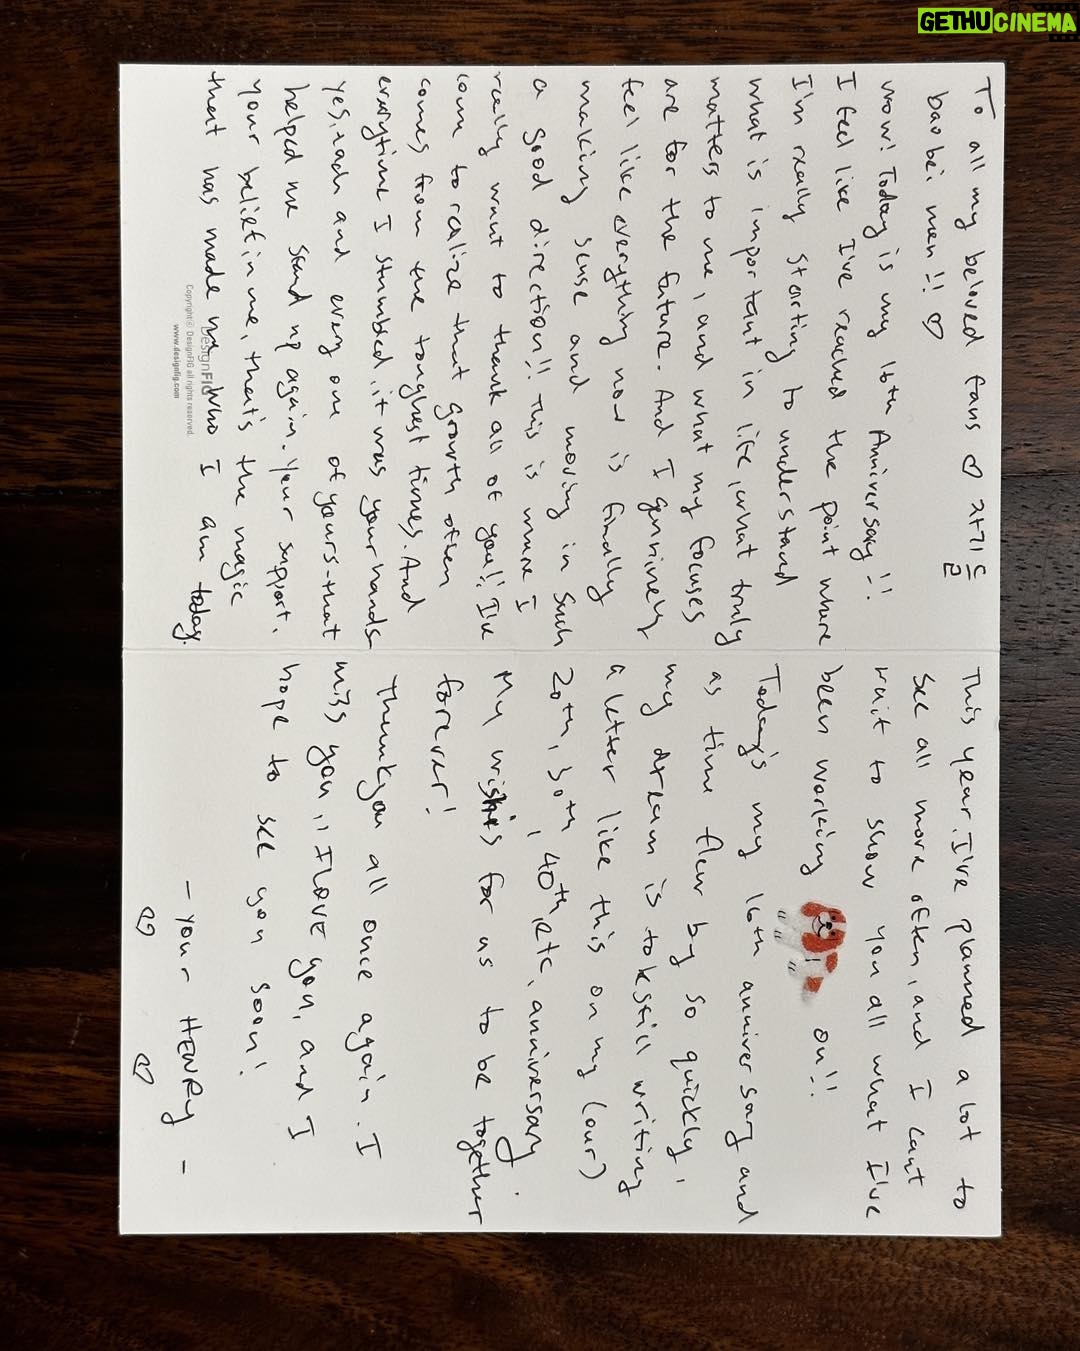 To all my beloved fans ♡ 자기들
baobei men!! ♡
wow! Today is my 16th Anniversary!!
I feel like I've reached the point where
I'm really starting to understand
what is important in life, what truly
matters to me, and what my focuses
are for the future. And I genuinely
feel like everything now is finally
making sense and moving in such
a good direction!! This is where I
really want to thank all of you!! I've
come to realize that growth often
comes from the toughest times. And
everytime I stumbled, it was your hands
yes, each and every one of yours - that
helped me stand up again. Your support,
your belief in me, that's the magic
that has made me who I am today.
DesignFIG
Copyright© DesignFIG all rights reserved.
www.designfig.com
This year, I've planned a lot to
see all more often, and I can't
wait to show you all what I've
been working on!!
Today's my 16th anniversary and
as time flew by so quickly,
my dream is to still writing
a letter like this on my (our)
20th, 30th, 40th, etc, anniversary.
My wish is for us to be together
forever!
Thank you all once again. I
miss you, I LOVE you, and I
hope to see you soon!
- your HENRY -
♡ ♡
GETHUCINEMA